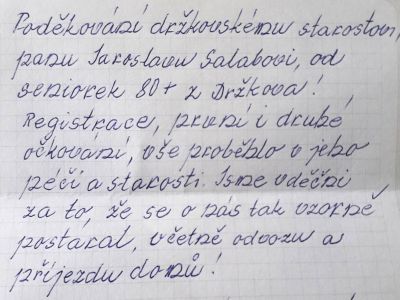 Poděkování držkovskému starostovi,
panu Jaroslavu Salabovi, od
seniorek 80+ z Držkova!
Registrace, první i druhé
očkovaní, vše proběhlo v jeho
péči a starosti. Jsme vděčni
za to, že se o nás tak vzorně
postáral, včetně odvozu a
příjezdu domů!